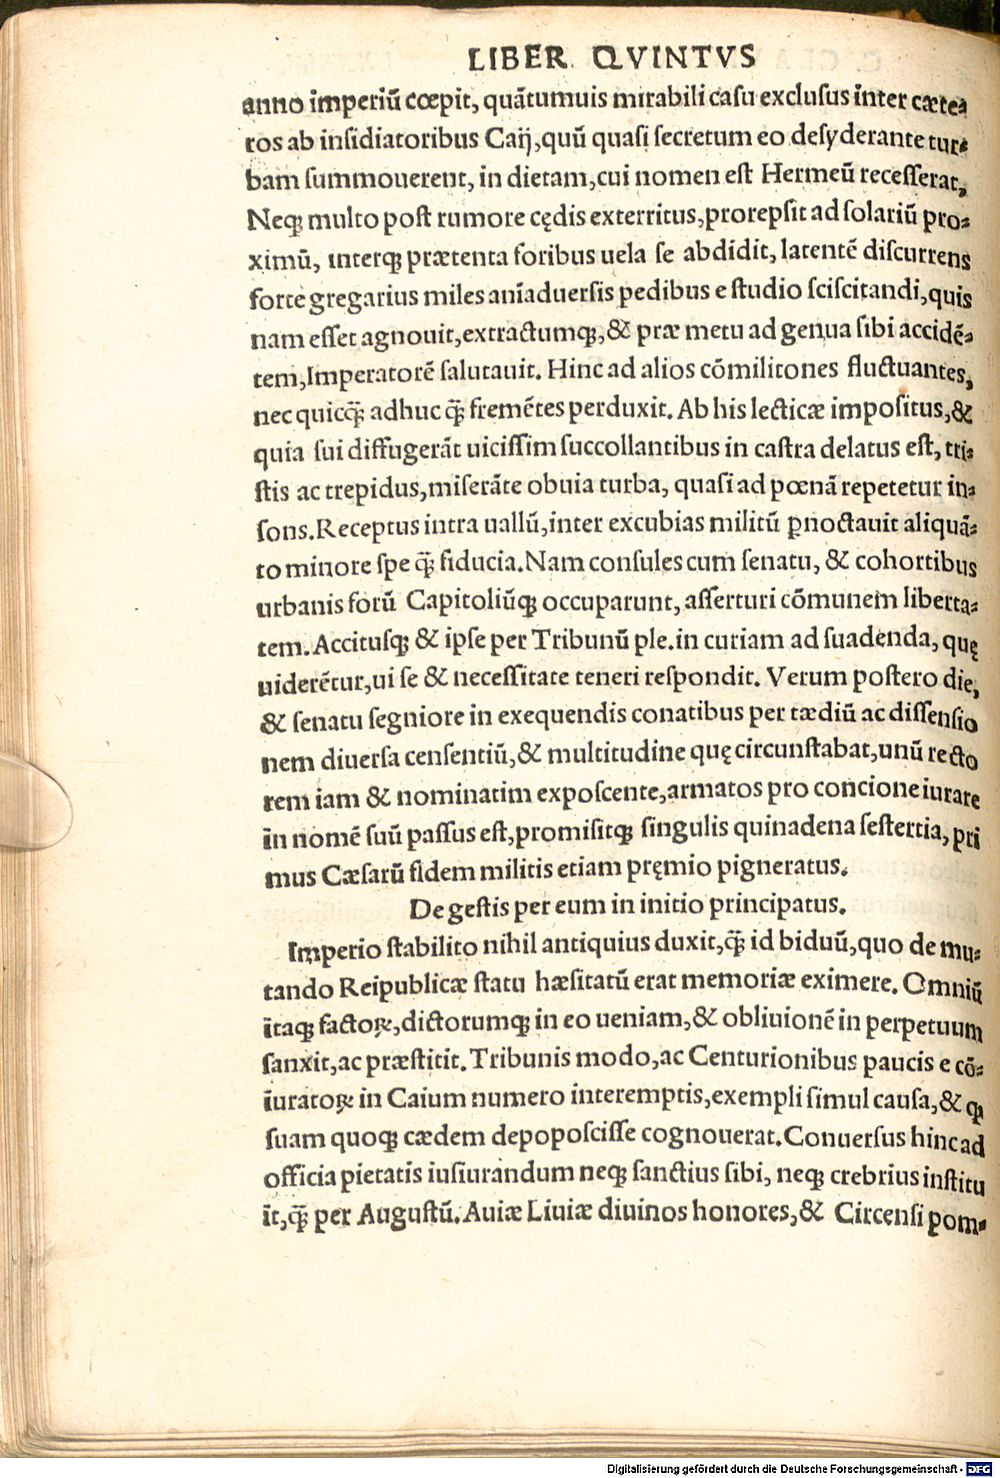 LIBER QVINTVS
anno imperiū cœpit, quātumuis mirabili casu exclusus inter cæte⸗
ros ab insidiatoribus Caij, quū quasi secretum eo desyderante tur⸗
bam summouerent, in dietam, cui nomen est Hermeū recesserat,
Neqꝫ multo post rumore cędis exterritus, prorepsit ad solariū pro⸗
ximū, interqꝫ prætenta foribus uela se abdidit, latentē discurrens
forte gregarius miles aniaduersis pedibus e studio sciscitandi, quis
nam esset agnouit, extractumqꝫ, & præ metu ad genua sibi accidē⸗
tem, Imperatorē salutauit. Hinc ad alios cōmilitones fluctuantes,
nec quicq̄ꝫ adhuc q̄ꝫ fremētes perduxit. Ab his lecticæ impositus, &
quia sui diffugerāt uicissim succollantibus in castra delatus est, tri⸗
stis ac trepidus, miserāte obuia turba, quasi ad pœnā repetetur in⸗
sons. Receptus intra uallū, inter excubias militū ꝑnoctauit aliquā⸗
to minore spe q̄ꝫ fiducia. Nam consules cum senatu, & cohortibus
urbanis forū Capitoliūqꝫ occuparunt, asserturi cōmunem liberta⸗
tem. Accitusqꝫ & ipse per Tribunū ple. in curiam ad suadenda, quę
uiderētur, ui se & necessitate teneri respondit. Verum postero die,
& senatu segniore in exequendis conatibus per tædiū ac dissensio
nem diuersa censentiū, & multitudine quę circunstabat, unū recto
rem iam & nominatim exposcente, armatos pro concione iurare
in nomē suū passus est, promisitqꝫ singulis quinadena sestertia, pri
mus Cæsarū fidem militis etiam pręmio pigneratus.
De gestis per eum in initio principatus.
Imperio stabilito nihil antiquius duxit, q̄ꝫ id biduū, quo de mu⸗
tando Reipublicæ statu hæsitatū erat memoriæ eximere. Omniū
itaqꝫ factoꝝ, dictorumqꝫ in eo ueniam, & obliuionē in perpetuum
sanxit, ac præstitit. Tribunis modo, ac Centurionibus paucis e cō⸗
iuratoꝝ in Caium numero interemptis, exempli simul causa, & qꝫ
suam quoqꝫ cædem depoposcisse cognouerat. Conuersus hinc ad
officia pietatis iusiurandum neqꝫ sanctius sibi, neqꝫ crebrius institu
it, q̄ꝫ per Augustū. Auiæ Liuiæ diuinos honores, & Circensi pom⸗
Digitalisierung gefördert durch die Deutsche Forschungsgemeinschaft - DFG